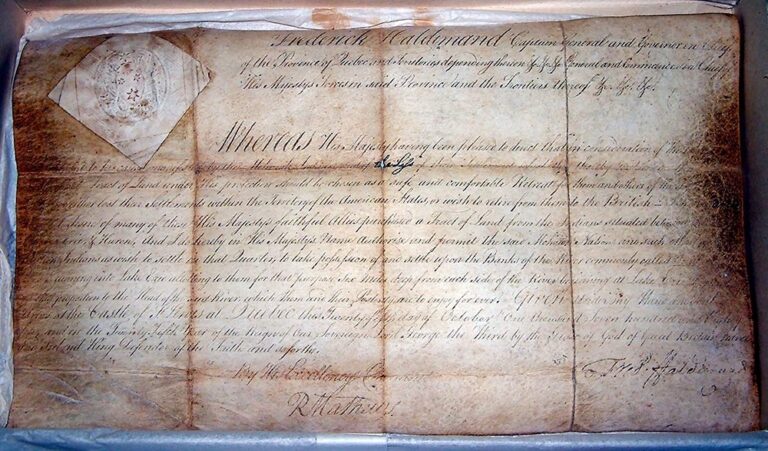 Frederick Haldimand Captain General and Governor in Chief
of the Province of Quebec and Territories depending thereon &c &c &c General and Commander in Chief
His Majesty's Forces in said Province and the Frontiers thereof &c. &c. &c.
Whereas His Majesty having been pleased to direct that in consideration of the
the Loss of their Settlement
Tract of Land under His protection should be chosen as a safe and comfortable Retreat for them and others of the
lost their Settlements within the Territory of the American States, or wish to retire from them to the British
desire of many of these His Majesty's faithful Allies purchased a Tract of Land from the Indians situated between
Huron, And I do hereby in His Majesty's Name Authorize and permit the said Mohawk Nation and such other
Indians as wish to settle in that Quarter to take possession of and settle upon the Banks of the River commonly called
running into Lake Erie, allotting to them for that purpose Six Miles deep from each side of the River beginning at Lake Erie
proportion to the Head of the said River, which them and their Posterity are to enjoy for ever. Given under my Hand
at the Castle of St Lewis at Quebec this Twenty fifth day of October One thousand Seven hundred and
and in the Twenty fifth Year of the Reign of Our Sovereign Lord George the Third by the Grace of God of Great Britain France
and Ireland King Defender of the Faith and so forth.
Fred: Haldimand
By His Excellency's Command
R Mathews